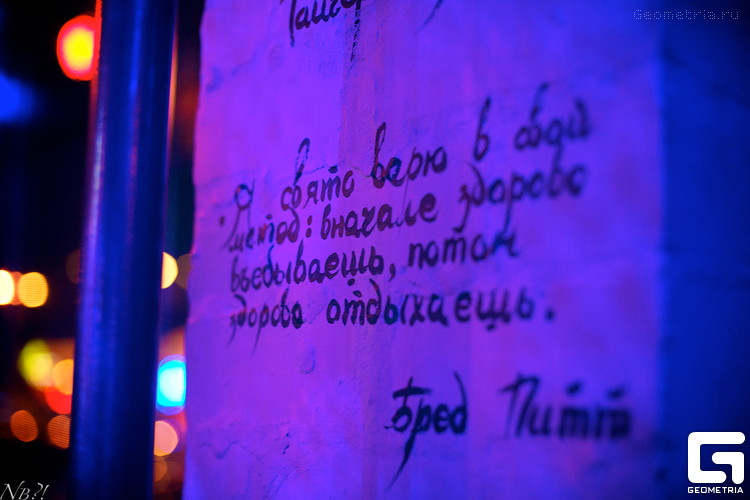 Geometria.ru
. Я свято верю в свой
метод: вначале здорово
въебываешь, потом
здорово отдыхаешь.
Бред Питт
GEOMETRIA
NB?!